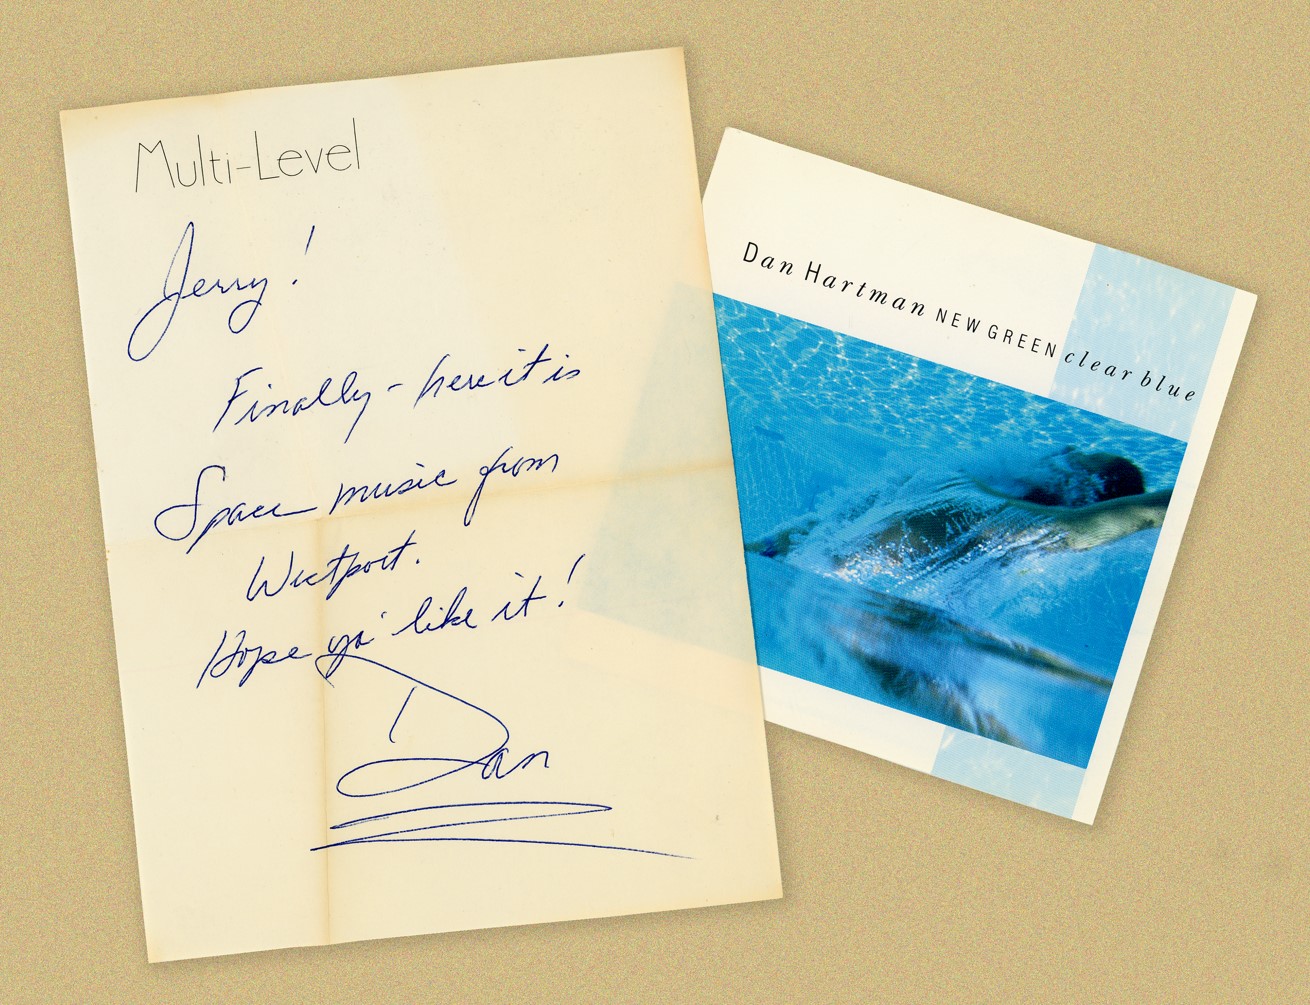 Multi-Level
Jerry!
Finally - here it is
Space music from
Westport.
Hope ya' like it!
Dan
Dan Hartman NEW GREEN clear blue